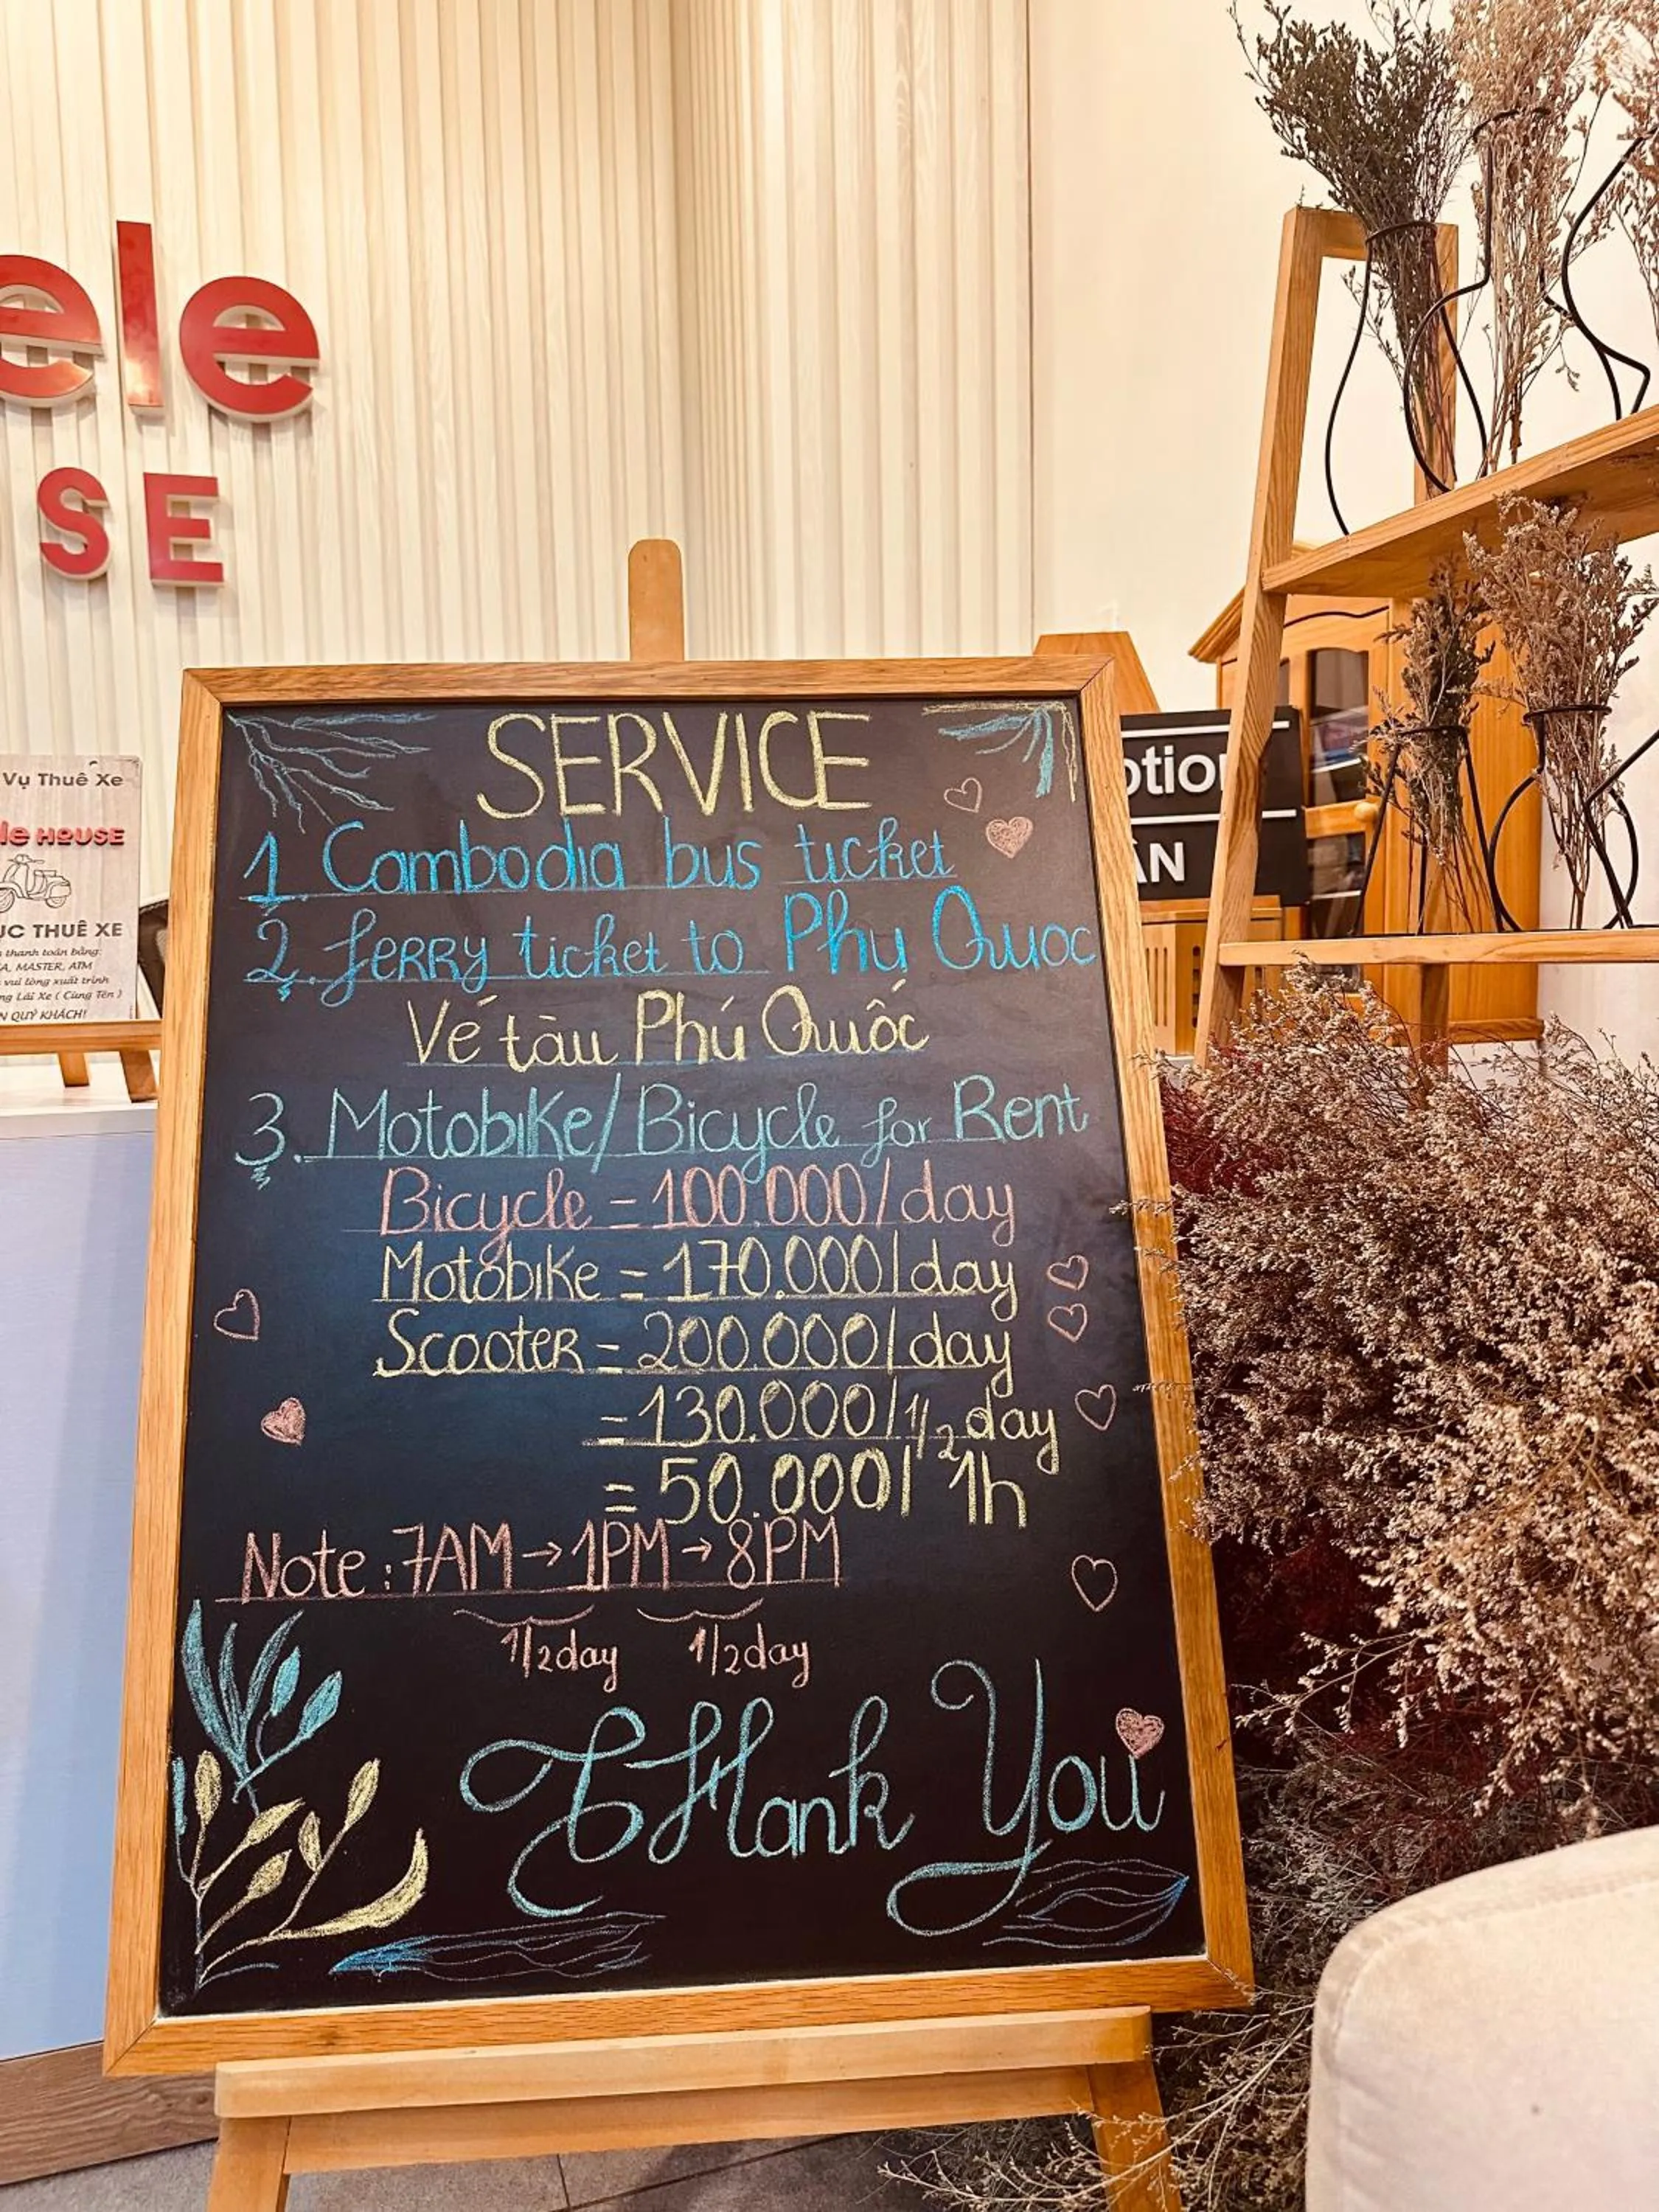 ele
SE
Vụ Thuê Xe
le HOUSE
ỤC THUÊ XE
thanh toán bằng:
A, MASTER, ATM
vui lòng xuất trình
ng Lái Xe ( Cùng Tên )
N QUÝ KHÁCH!
ption
ÂN
SERVICE
1. Cambodia bus ticket
2. Ferry ticket to Phu Quoc
Vé tàu Phú Quốc
3. Motobike/Bicycle for Rent
Bicycle = 100.000/day
Motobike = 170.000/day
Scooter = 200.000/day
= 130.000/1/2 day
= 50.000/1h
Note: 7AM → 1PM → 8PM
1/2day 1/2day
Thank You